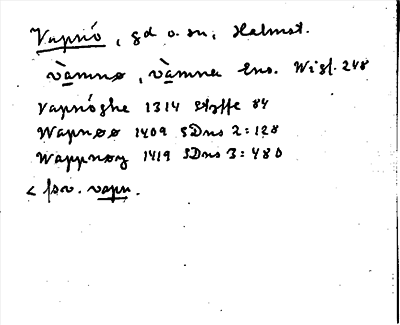 Vapnö, gd o. sn, Halmst.
vàmnø, vàmnea Ens. Wigf. 248
Vapnóghe 1314 Styffe 84
Wapnøø 1409 SDns 2:128
Wappnøy 1419 SDns 3:480
< fsv. vapn.